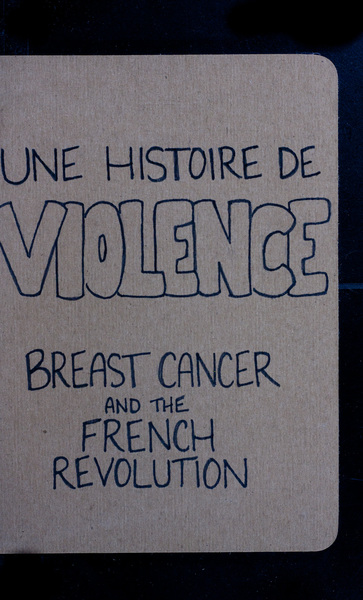 UNE HISTOIRE DE
VIOLENCE
BREAST CANCER
AND THE
FRENCH
REVOLUTION